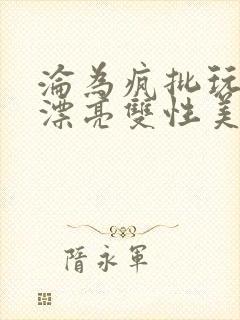 淪為瘋批玩
漂亮雙性美
隋永軍